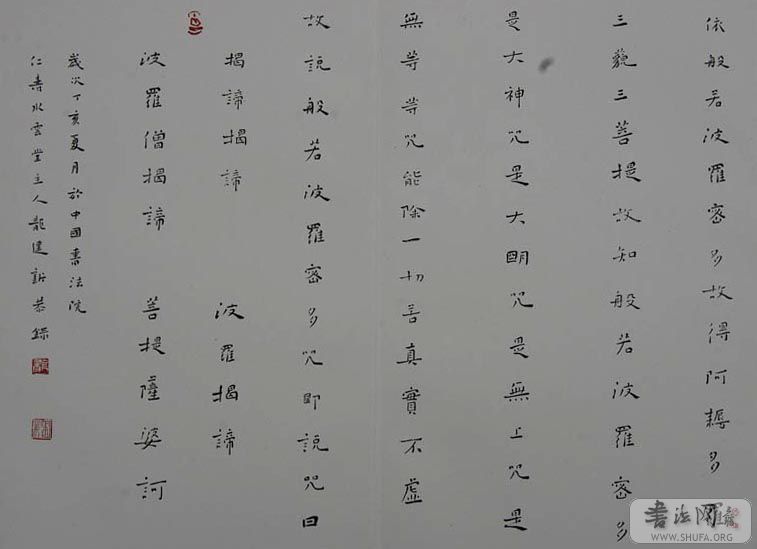 依般若波羅密多故得阿耨多羅
三藐三菩提故知般若波羅密多
是大神咒是大明咒是無上咒是
無等等咒能除一切苦真實不虛
故說般若波羅密多咒即說咒曰
揭諦揭諦 波羅揭諦
波羅僧揭諦 菩提薩婆訶
歲次丁亥夏月於中國書法院
仁壽水雲堂主人龍建訢恭錄
書法网
WWW.SHUFA.ORG